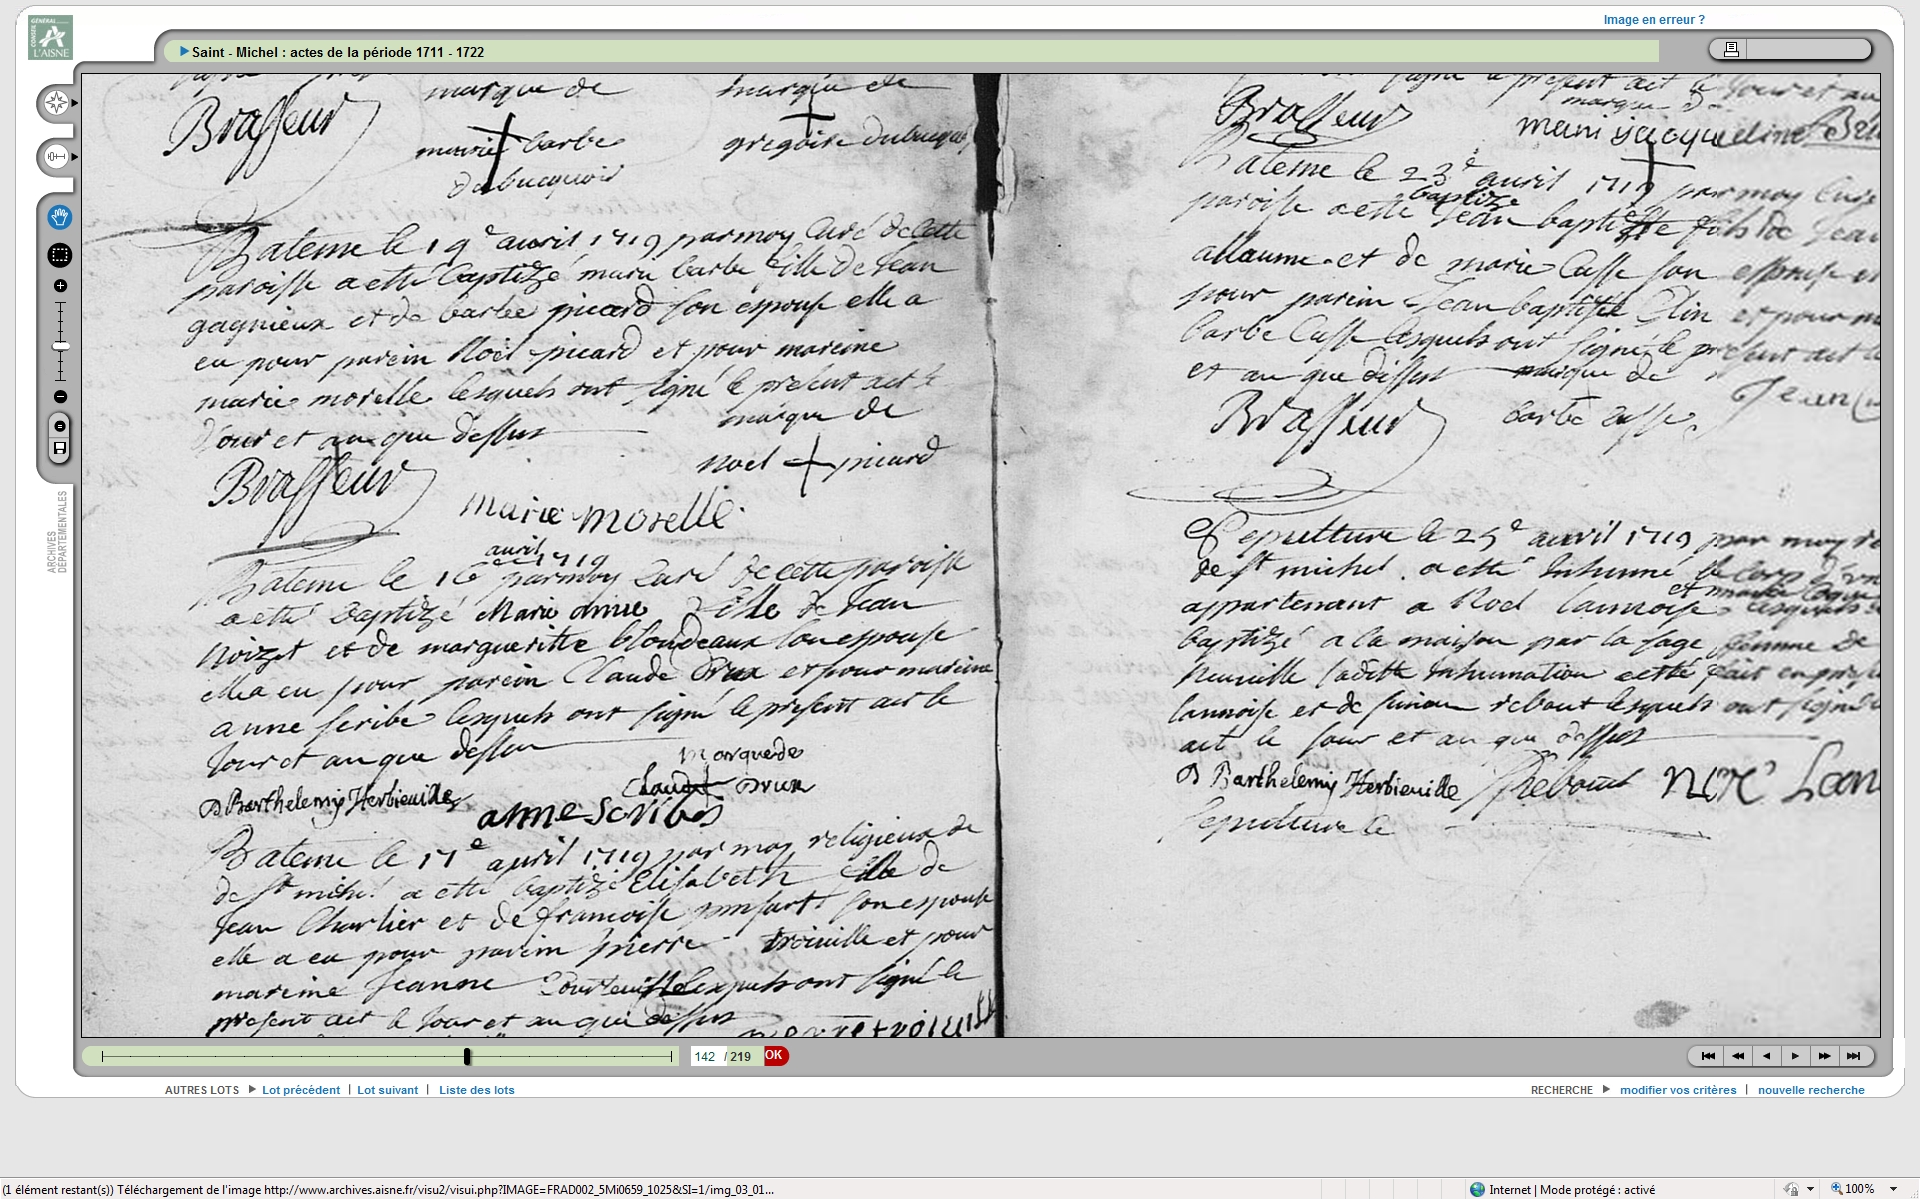 Image en erreur ?
CONSEIL GÉNÉRAL L'AISNE
Saint - Michel : actes de la période 1711 - 1722
ARCHIVES DÉPARTEMENTALES
marque de marque de
Brasseur
marie barbe gregoire dubucquoy
dubucquois
Bateme le 19e auril 1719 par moy Curé de Cette
paroisse a etté baptizé marie barbe fille de Jean
gagnieux et de barbe picard son espouse elle a
eu pour parein Noel picard et pour mareine
marie morelle lesquels ont signé le present act le
Jour et an que dessus
marque de
noel picard
Brasseur
marie morelle
auril 1719
Bateme le 16 par moy Curé de cette paroisse
a etté baptizé Marie anne fille de Jean
Noizet et de margueritte blondeaux son espouse
elle a eu pour parein Claude Drux et pour mareine
anne scribe lesquels ont signé le present act le
Jour et an que dessus
marque de
Claude Drux
D Barthelemy Herbieuille
anne scribes
Bateme le 17e auril 1719 par moy religieux de
de St michel a etté baptizé Elisabeth fille de
Jean Charlier et de francoise son espouse
elle a eu pour parein pierre trouille et pour
mareine Jeanne lesquels ont signé le
present act le Jour et an que dessus
pierre trouille
signe le present act le Jour et an
marque de
Brasseur
Bateme le 23e auril 1719 par moy Curé
baptizé
paroisse a etté Jean baptiste fils de Jean
allaume et de marie Casse son espouse et
pour parein Jean baptiste Clin et pour
barbe Casse lesquels ont signé le present act le
et an que dessus marque de
Brasseur barbe Casse Jean
Sepulture le 25e auril 1719 par moy
de St michel a etté Inhumé le Corps d'un
et
appartenant a Noel lannoise lesquels
baptizé a la maison par la sage femme de
Neuuille ladite Inhumation a etté fait en
lannoise et de simon rebout lesquels ont signé
act le Jour et an que dessus
D Barthelemy Herbieuille Rebout
Sepulture le
142 / 219 OK
AUTRES LOTS Lot précédent | Lot suivant | Liste des lots
RECHERCHE modifier vos critères | nouvelle recherche
(1 élément restant(s)) Téléchargement de l'image http://www.archives.aisne.fr/visu2/visui.php?IMAGE=FRAD002_5Mi0659_1025&SI=1/img_03_01...
Internet | Mode protégé : activé
100%